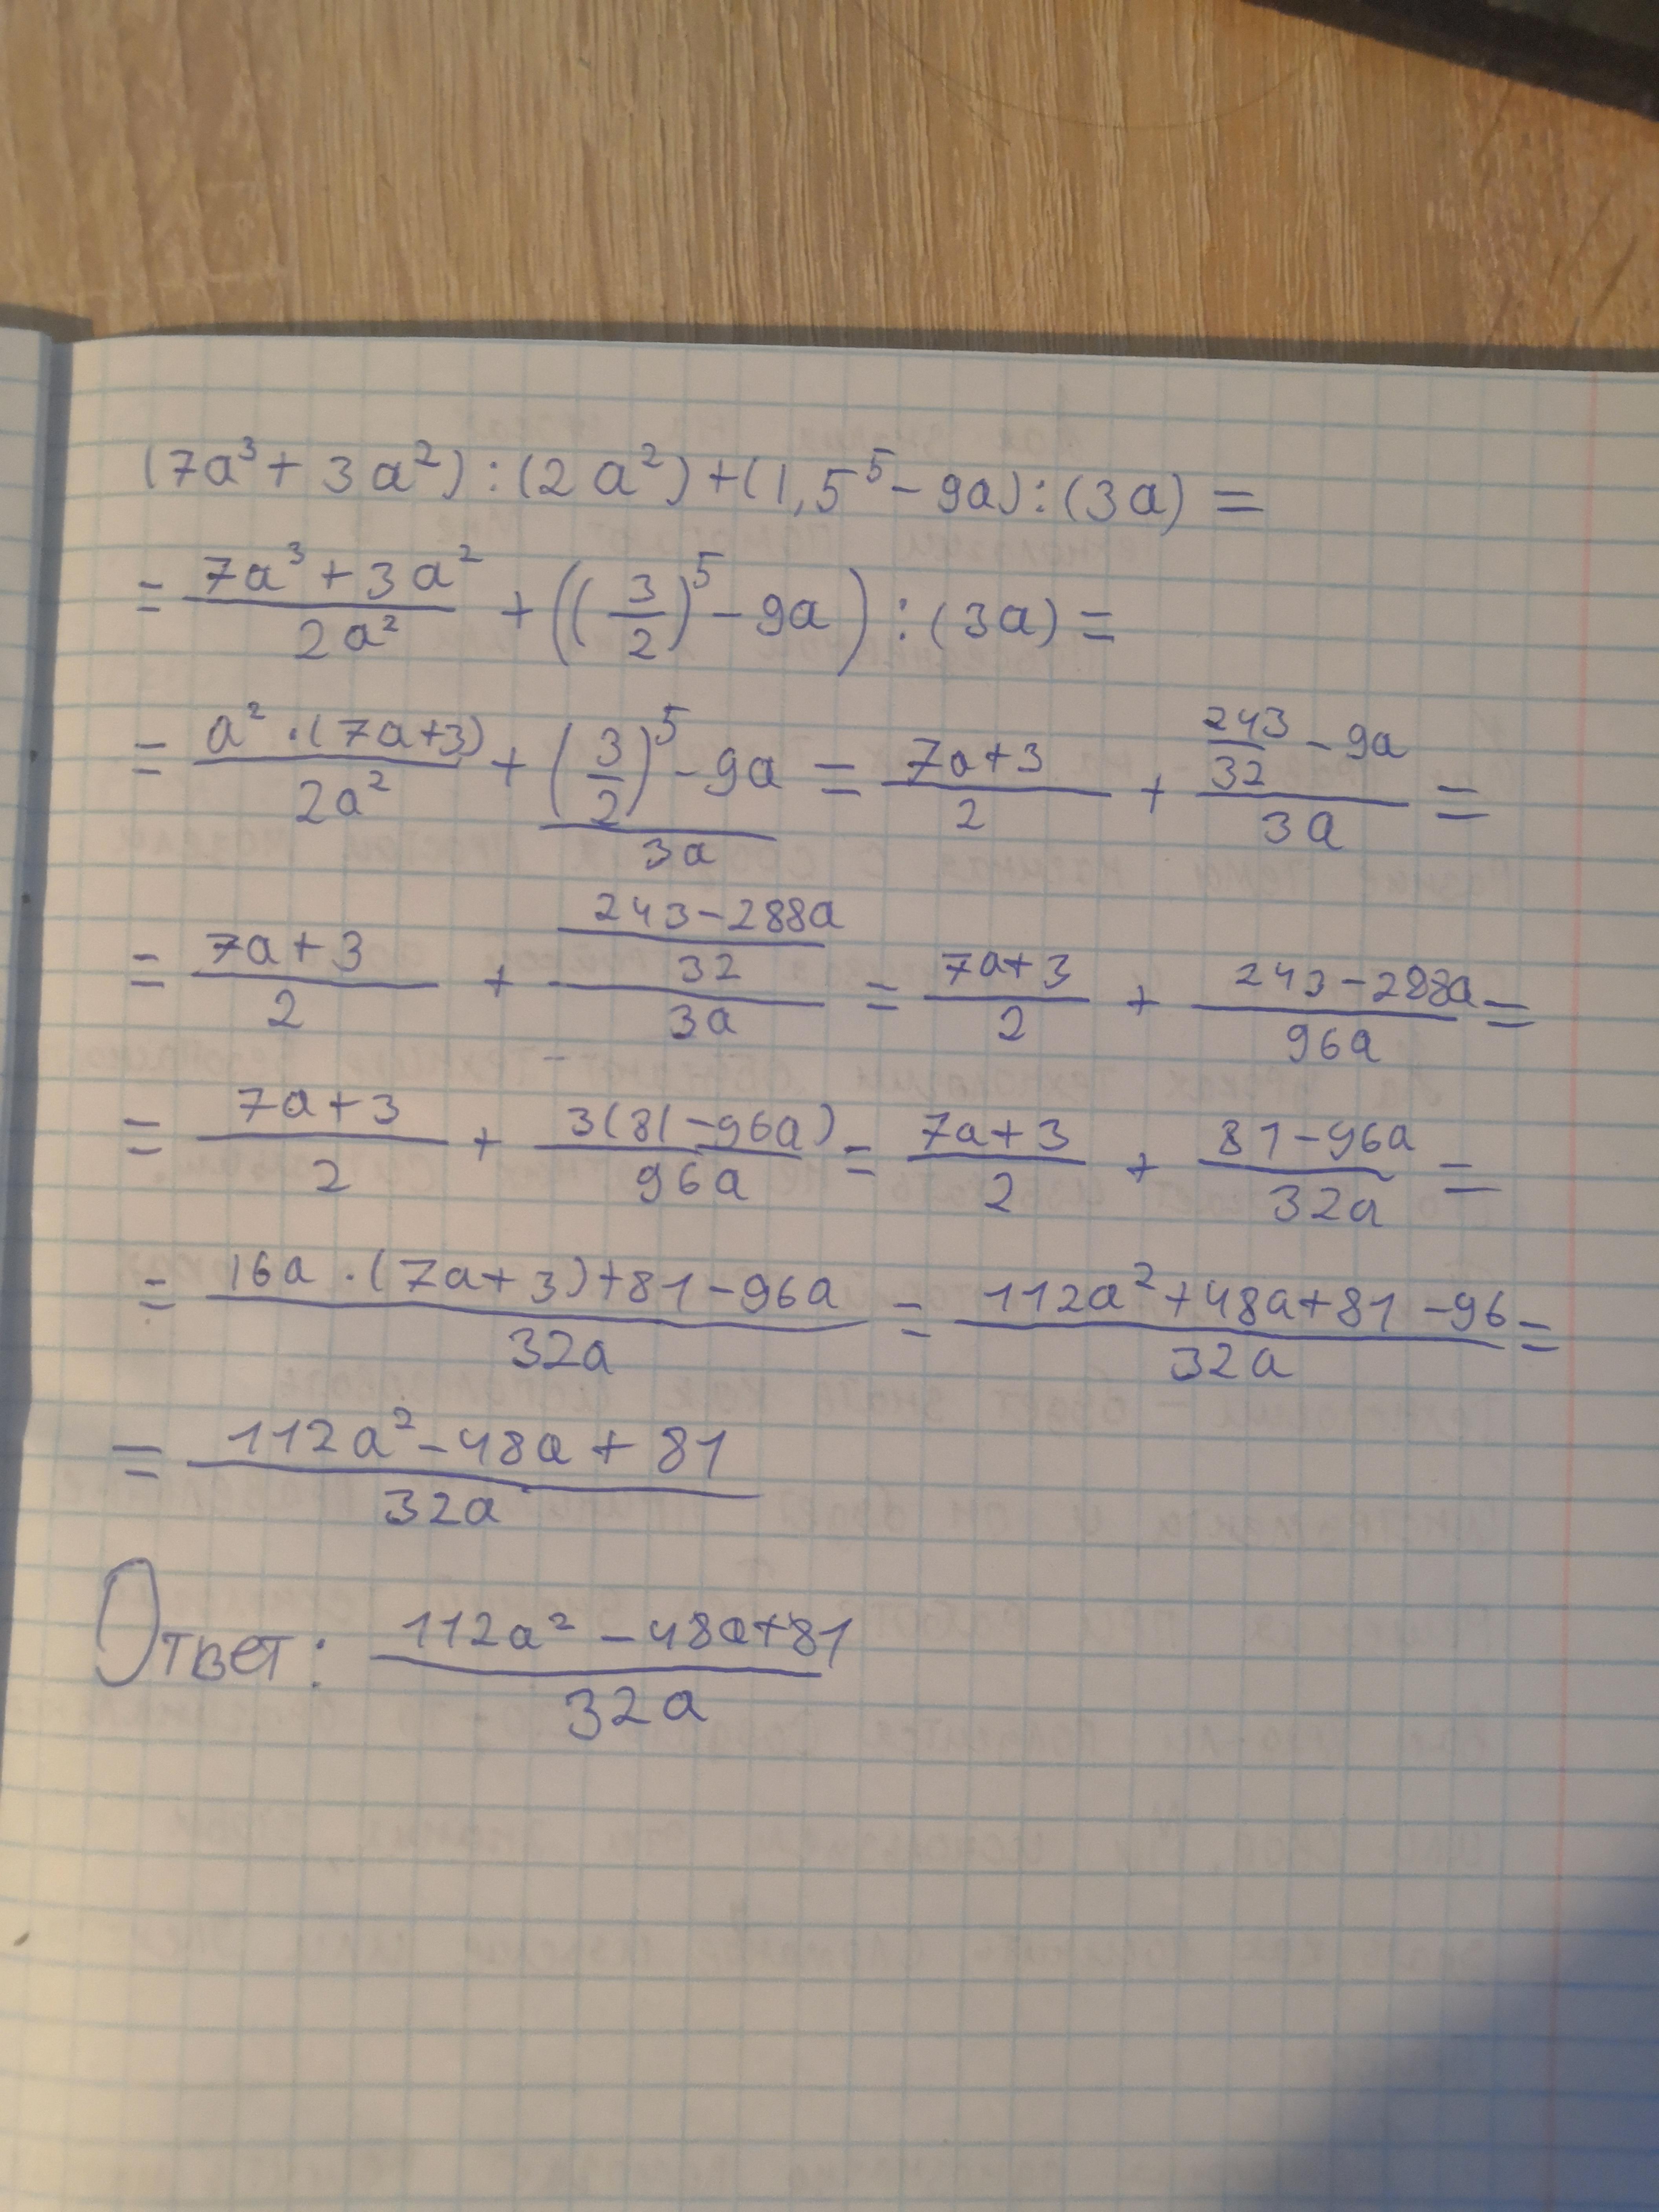 (7a³ + 3a²) : (2a²) + (1,5⁵ - 9a) : (3a) =
= (7a³ + 3a²)/(2a²) + ((3/2)⁵ - 9a) : (3a) =
= (a² · (7a+3))/(2a²) + ((3/2)⁵ - 9a)/(3a) = (7a+3)/2 + (243/32 - 9a)/(3a) =
= (7a+3)/2 + ((243-288a)/32)/(3a) = (7a+3)/2 + (243-288a)/(96a) =
= (7a+3)/2 + (3(81-96a))/(96a) = (7a+3)/2 + (81-96a)/(32a) =
= (16a · (7a+3)+81-96a)/(32a) = (112a²+48a+81-96)/(32a) =
= (112a²-48a+81)/(32a)
Ответ: (112a²-48a+81)/(32a)